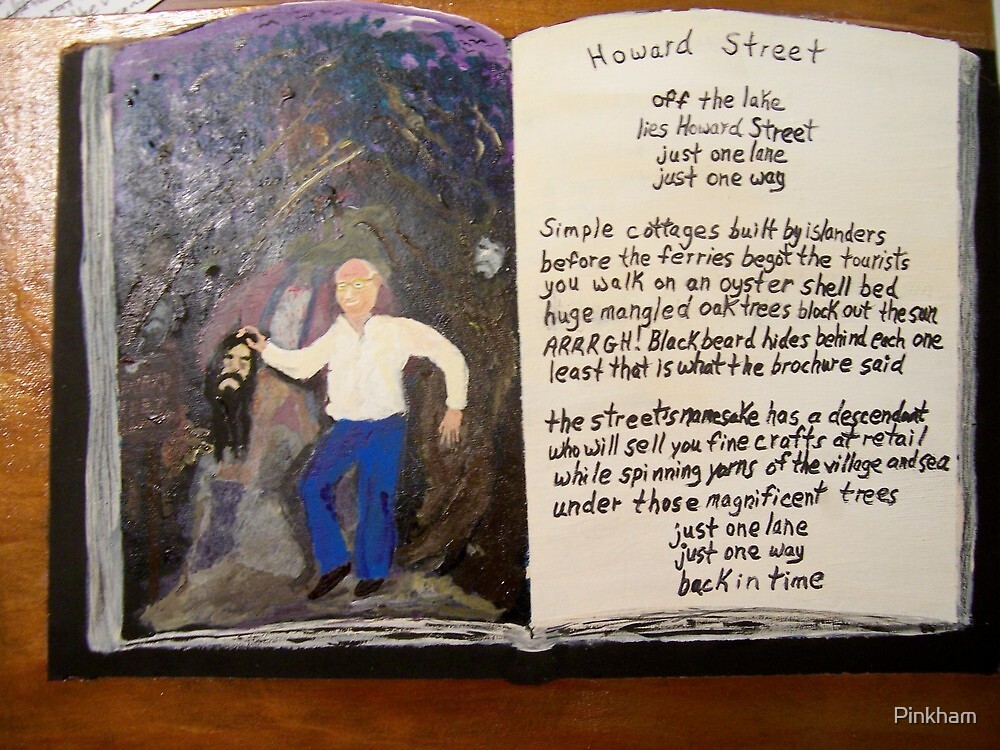 Howard Street
off the lake
lies Howard Street
just one lane
just one way
Simple cottages built by islanders
before the ferries begot the tourists
you walk on an oyster shell bed
huge mangled oak trees block out the sun
ARRRGH! Blackbeard hides behind each one
least that is what the brochure said
the street's namesake has a descendant
who will sell you fine crafts at retail
while spinning yarns of the village and sea
under those magnificent trees
just one lane
just one way
back in time
Pinkham